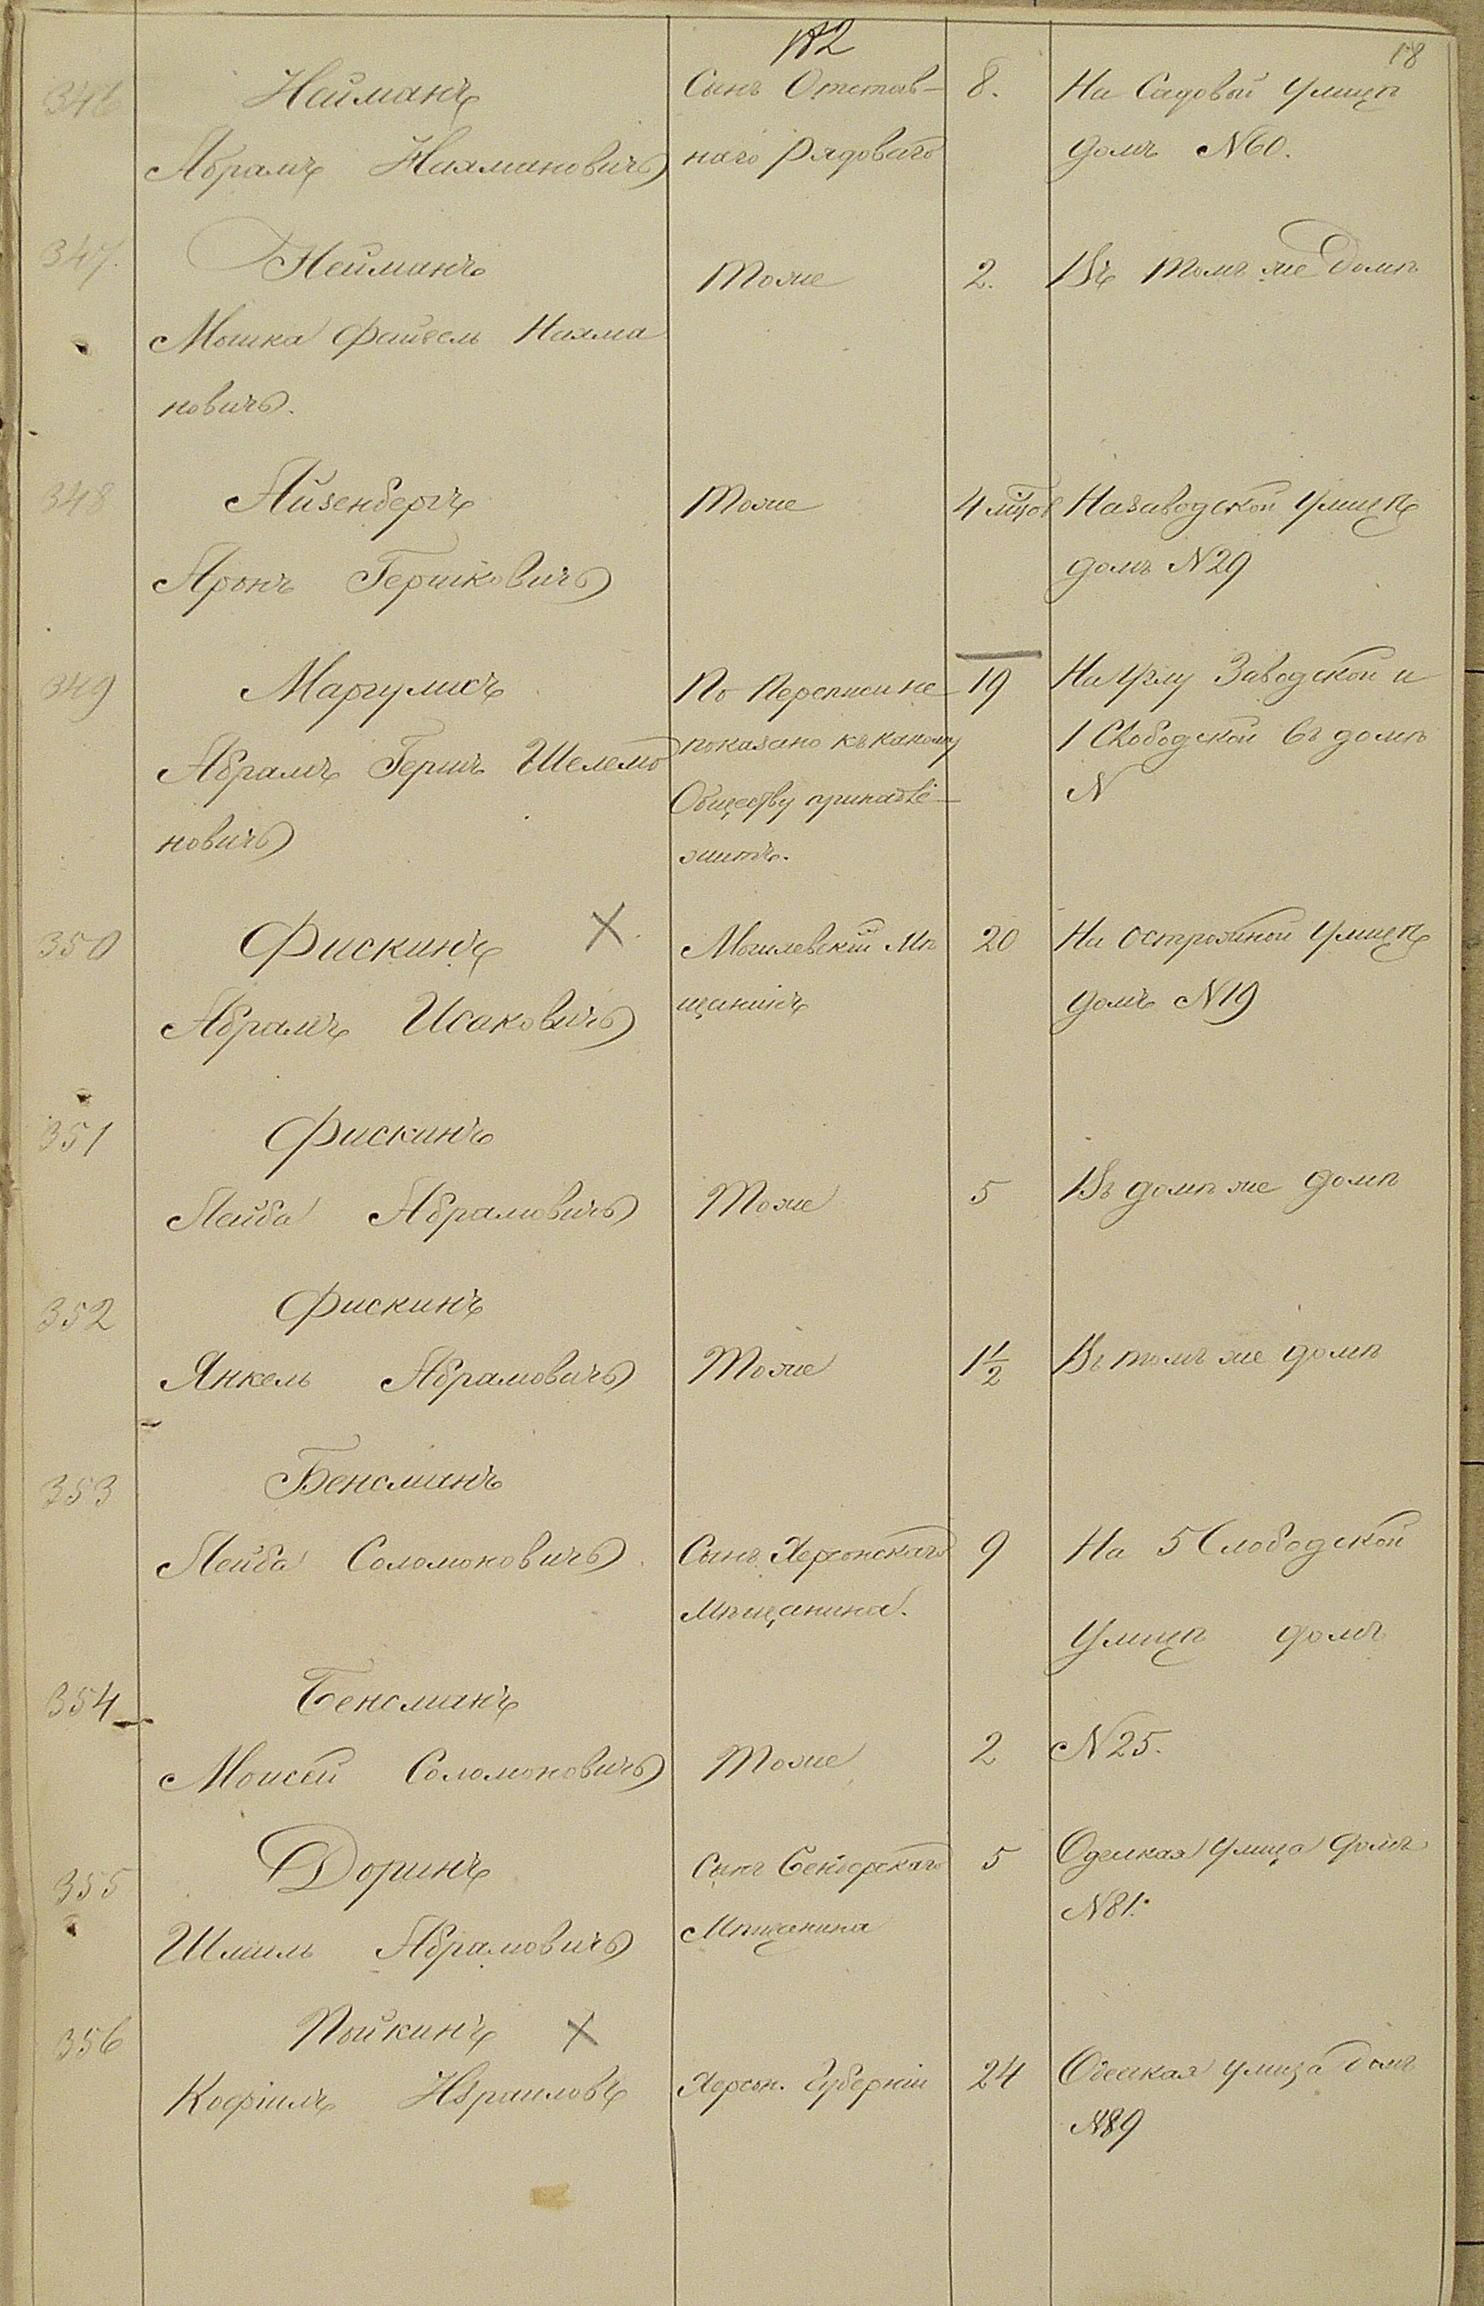 182
18
346 Нейманъ Сынъ Отстав- 8. На Садовой улицѣ
Абрамъ Нахмановичъ наго рядоваго домъ N60.
347. Нейманъ Тоже 2. Въ томъ же домѣ
Мошка Файвель Нахма
новичъ.
348 Айзенбергъ Тоже 4 мѣсОв На заводской улицѣ
Аронъ Гершковичъ домъ N29
349 Маргулисъ По переписи не 19 На углу Заводской и
Абрамъ Гершъ Шелемо показано къ какому 1 Слободской въ домѣ
Обществу принадле- N
новичъ житъ.
350 Фискинъ X Могилевскій Мѣ 20 На острожной улицѣ
Абрамъ Исаковичъ щанинъ домъ N19
351 Фискинъ
Лейба Абрамовичъ Тоже 5 Въ домѣ же домѣ
352 Фискинъ
Янкель Абрамовичъ Тоже 1 1/2 Въ томъ же домѣ
353 Бенсманъ
Лейба Соломоновичъ Сынъ Херсонскаго 9 На 5 Слободской
Мѣщанина. улицѣ домъ
354 Бенсманъ
Моисей Соломоновичъ Тоже 2 N25.
355 Доринъ Сынъ 5 Одесская улица домъ
Шмиль Абрамовичъ Мѣщанина N81.
356 Пойкинъ X
Херсон. Губерніи 24 Одесская улица домъ
N89